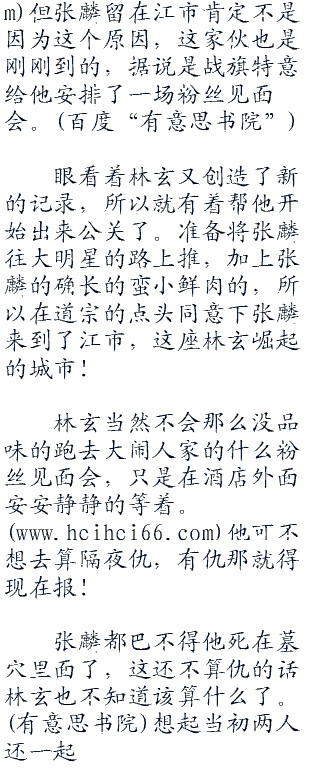 m)但张麟留在江市肯定不是
因为这个原因，这家伙也是
刚刚到的，据说是战旗特意
给他安排了一场粉丝见面
会。(百度“有意思书院”)
眼看着林玄又创造了新
的记录，所以就有着帮他开
始出来公关了。准备将张麟
往大明星的路上推，加上张
麟的确长的蛮小鲜肉的，所
以在道宗的点头同意下张麟
来到了江市，这座林玄崛起
的城市！
林玄当然不会那么没品
味的跑去大闹人家的什么粉
丝见面会，只是在酒店外面
安安静静的等着。
(www.hcihci66.com)他可不
想去算隔夜仇，有仇那就得
现在报！
张麟都巴不得他死在墓
穴里面了，这还不算仇的话
林玄也不知道该算什么了。
(有意思书院)想起当初两人
还一起